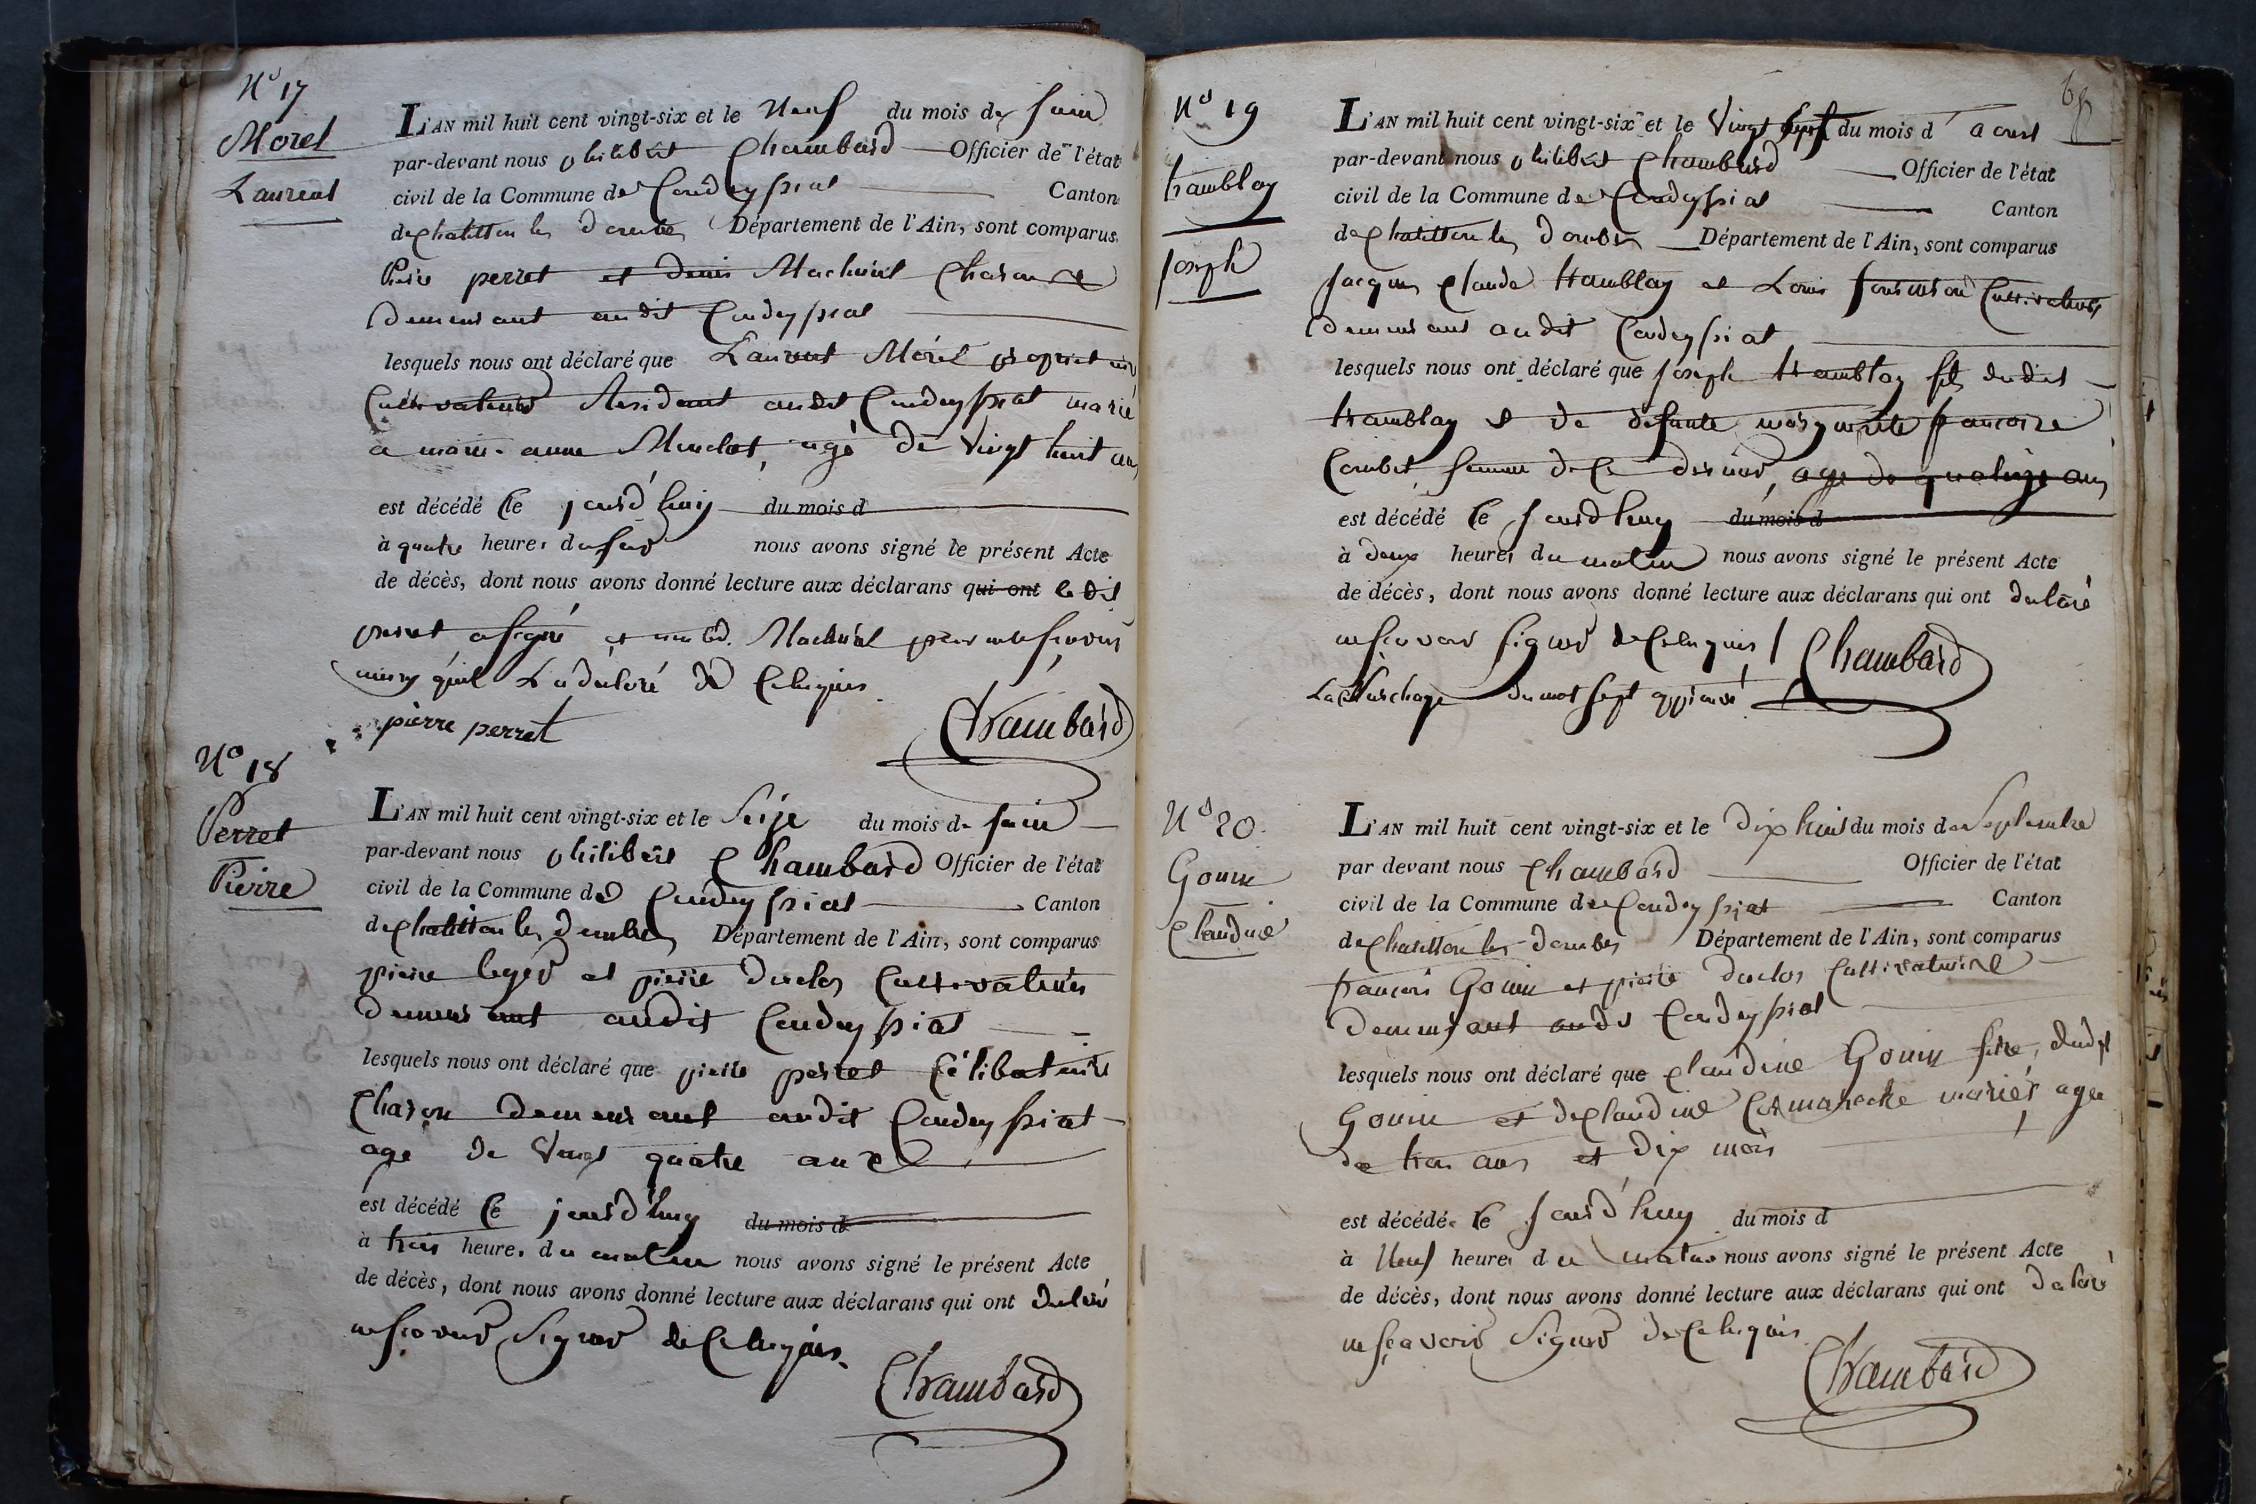 N° 17
Morel
Laurent
L'AN mil huit cent vingt-six et le Neuf du mois de juin
par-devant nous philibert Chambard Officier de l'état
civil de la Commune de Condeyssiat Canton
de chatillon les dombes Département de l'Ain, sont comparus
Pierre perret et denis Machurel Charon
demeurant audit Condeyssiat
lesquels nous ont déclaré que Laurent Morel propriétaire
Cultivateur Residant audit Condeyssiat marié
a marie anne Monclot, agé de vingt huit ans
est décédé Ce jourd'huy du mois d
à quatre heures du soir nous avons signé le présent Acte
de décès, dont nous avons donné lecture aux déclarans qui ont ledit
perret a signé et non led. Machurel pour ne sçavoir
ainsy quil La déclaré de Ce Enquis
pierre perret Chambard
N° 18
Perret
Pierre
L'AN mil huit cent vingt-six et le Seize du mois de juin
par-devant nous philibert Chambard Officier de l'état
civil de la Commune de Condeyssiat Canton
de chatillon les dombes Département de l'Ain, sont comparus
pierre leger et pierre duclos Cultivateurs
demeurant audit Condeyssiat
lesquels nous ont déclaré que pierre perret Célibataire
Charon demeurant audit Condeyssiat
age de Vingt quatre ans
est décédé Ce jourd'huy du mois d
à trois heures du matin nous avons signé le présent Acte
de décès, dont nous avons donné lecture aux déclarans qui ont declaré
ne sçavoir Signer de Ce Enquis
Chambard
N° 19
tramblay
joseph
L'AN mil huit cent vingt-six et le Vingt sept du mois d' aoust
par-devant nous philibert Chambard Officier de l'état
civil de la Commune de Condeyssiat Canton
de chatillon les dombes Département de l'Ain, sont comparus
jacques claude tramblay et Louis Cultivateurs
demeurant audit Condeyssiat
lesquels nous ont déclaré que joseph tramblay fils dudit
tramblay et de defunte marguerite francoise
Combet, femme de Ce dernier, age de quatorze ans
est décédé Ce jourd'huy du mois d
à deux heures du matin nous avons signé le présent Acte
de décès, dont nous avons donné lecture aux déclarans qui ont declaré
ne sçavoir signer de Ce Enquis / Chambard
La Surcharge du mot sept approuvé
N° 20
Gouin
Claudine
L'AN mil huit cent vingt-six et le Dix huit du mois de Septembre
par devant nous Chambard Officier de l'état
civil de la Commune de Condeyssiat Canton
de chatillon les dombes Département de l'Ain, sont comparus
francois Gouin et pierre duclos Cultivateurs
demeurant audit Condeyssiat
lesquels nous ont déclaré que claudine Gouin fille, dudit
Gouin et de claudine mariés, agée
de trois ans et dix mois
est décédée Ce jourd'huy du mois d
à Neuf heures du matin nous avons signé le présent Acte
de décès, dont nous avons donné lecture aux déclarans qui ont declaré
ne sçavoir Signer de Ce Enquis
Chambard